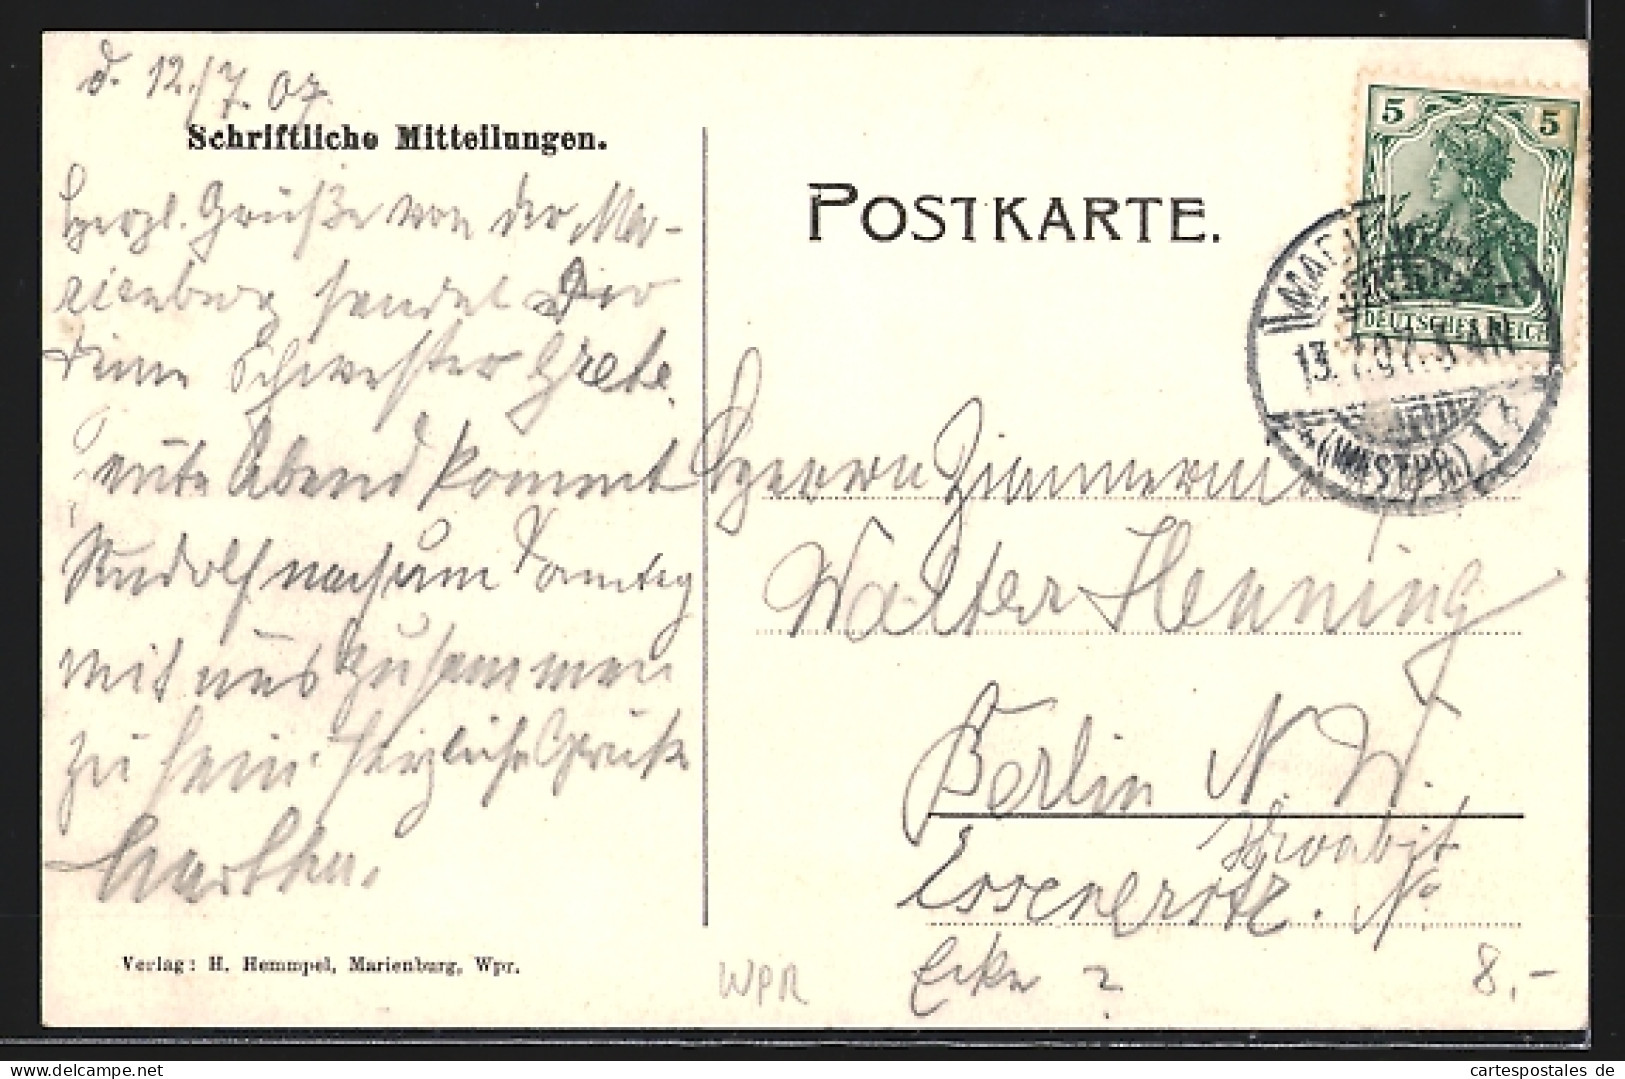 d. 12./7. 07.
Schriftliche Mitteilungen.
Herzl. Grüße von der Ma-
rienburg sendet Dir
Deine Schwester Grete.
Heute Abend kommt
Rudolf nach um Sonntag
mit uns zusammen
zu sein. Herzliche Grüße
Martha.
Verlag: H. Hemmpel, Marienburg, Wpr.
POSTKARTE.
5 5
DEUTSCHES REICH
MARIENBURG
13.7.07. AN
* (WESTPR) 1. *
Herrn Zimmerm
Walter Henning
Berlin N. W.
Moabit
Essenerstr. No
Ecke ?
WPR
8,-
cartespostales de